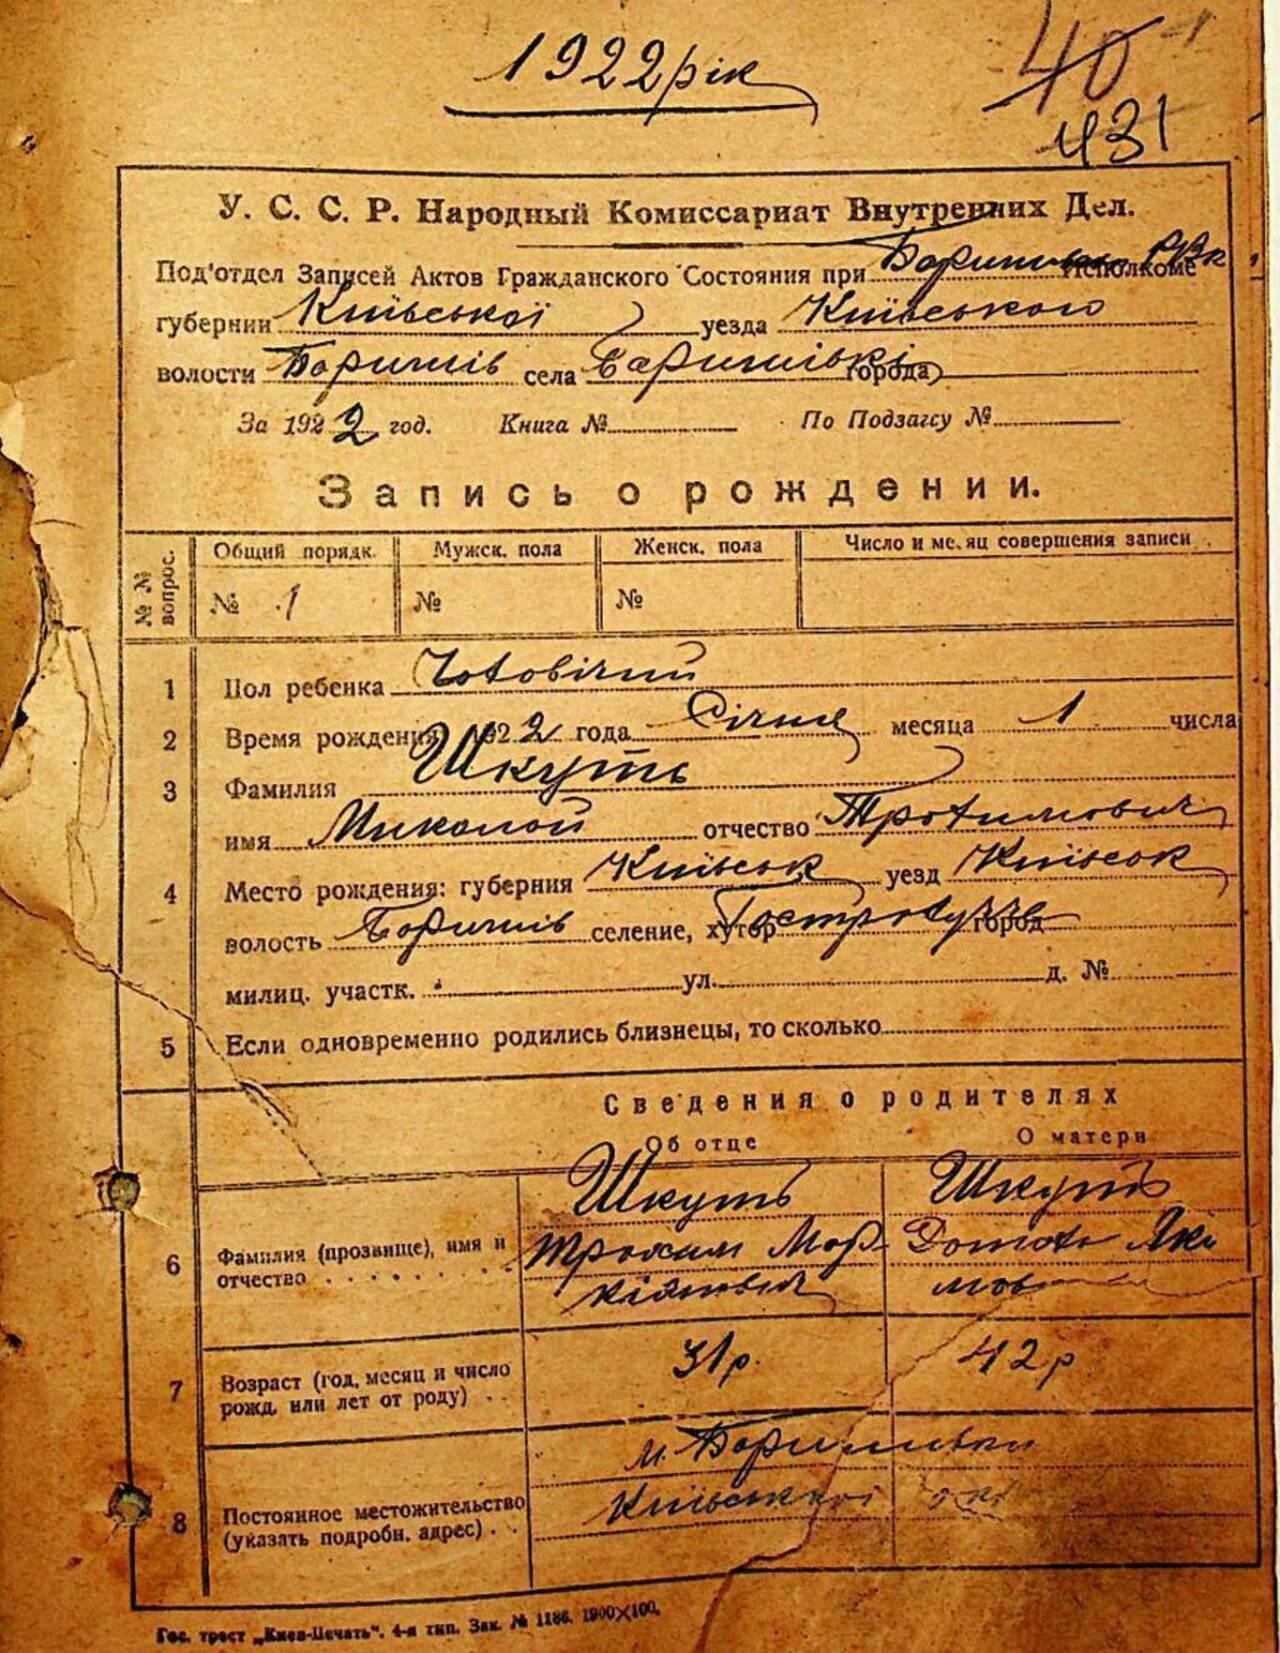 1922 рік
40 1
431
У. С. С. Р. Народный Комиссариат Внутренних Дел.
Под'отдел Записей Актов Гражданского Состояния при РВк Исполкоме
губернии Київської уезда Київського
волости Баришів села Баришівкі (города)
За 1922 год. Книга № По Подзагсу №
Запись о рождении.
№№ вопрос. Общий порядк. Мужск. пола Женск. пола Число и месяц совершения записи
№ 1 № №
1 Пол ребенка Чоловічий
2 Время рождения 1922 года Січня месяца 1 числа
3 Фамилия Шкуть
имя Миколай отчество Трохимович
4 Место рождения: губерния Київськ уезд Київськ
волость Баришів селение, хутор город
милиц. участк. ул. д. №
5 Если одновременно родились близнецы, то сколько
Сведения о родителях
Об отце О матери
Шкуть Шкуть
6 Фамилия (прозвище), имя и отчество Трохим Мар- Яки
кіянович мов
7 Возраст (год, месяц и число рожд. или лет от роду) 31р. 42р
м. Баришівки
8 Постоянное местожительство (указать подробн. адрес) Київської
Гос. трест „Киев-Печать". 4-я тип. Зак. № 1186. 1900×100.